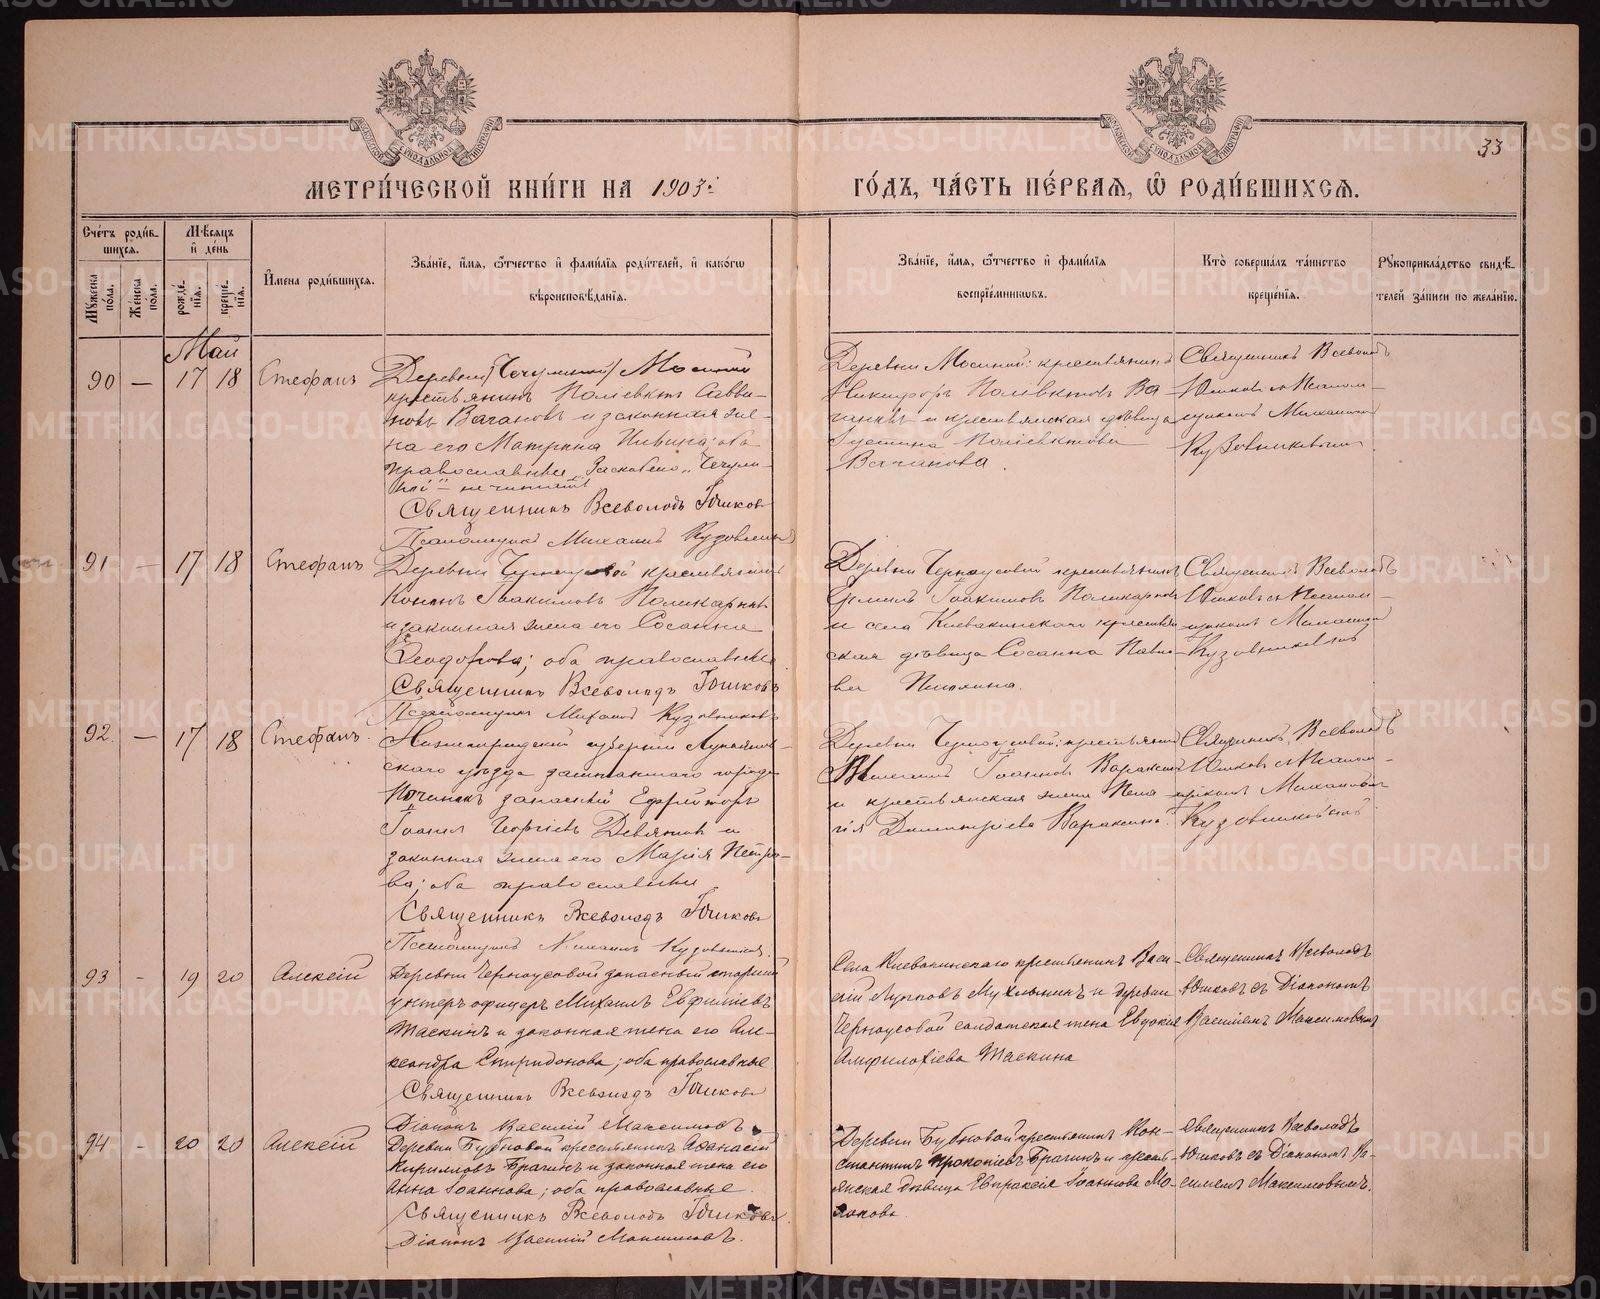 33
МЕТРИЧЕСКОЙ КНИГИ НА 1903й
ГОДЪ, ЧАСТЬ ПЕРВАЯ, Ѿ РОДИВШИХСЯ.
Счетъ родившихся.
Мужеска пола.
Женска пола.
Мѣсяцъ и день
рождения.
крещения.
Имена родившихся.
Званіе, имя, ѿтчество и фамилія родителей, и какогѡ
вѣроисповѣданія.
Званіе, имя, ѿтчество и фамилія
воспріемниковъ.
Кто совершалъ таинство
крещенія.
Рукоприкладство свидѣтелей записи по желанію.
Май
90 — 17 18 Стефанъ
Деревни (Чечулиной) Мосиной
крестьянинъ Поліевктъ Савви-
новъ Вачановъ и законная же-
на его Матрона; оба
православные. Заскоблено „Чечули-
ной“ — не читать
Священникъ Всеволодъ Юшковъ
Псаломщикъ Михаилъ Кузовниковъ
Деревни Мосиной: крестьянинъ
Никифоръ Поліевктовъ Ва-
чановъ и крестьянская дѣвица
Поліевктова
Вачанова.
Священникъ Всеволодъ
Юшковъ съ Псалом-
щикомъ Михаиломъ
Кузовниковымъ
91 — 17 18 Стефанъ
Деревни Черноусовой крестьянинъ
Кононъ Іоакимовъ Поликарповъ
и законная жена его Сосанна
Ѳеодорова; оба православные.
Священникъ Всеволодъ Юшковъ
Псаломщикъ Михаилъ Кузовниковъ
Деревни Черноусовой крестьянинъ
Іоакимовъ Поликарповъ
и села Клевакинскаго крестьян-
ская дѣвица Сосанна Павло-
ва
Священникъ Всеволодъ
Юшковъ съ Псалом-
щикомъ Михаиломъ
Кузовниковымъ
92. — 17 18 Стефанъ.
Нижегородской губерніи Лукоянов-
скаго уѣзда заштатнаго города
Починокъ запасный Ефрейторъ
Іоаннъ Георгіевъ Девятовъ и
законная жена его Марія Петро-
ва; оба православные
Священникъ Всеволодъ Юшковъ
Псаломщикъ Михаилъ Кузовниковъ.
Деревни Черноусовой: крестьянинъ
Іоанновъ Вараксинъ
и крестьянская жена Пела-
гія Димитріева Вараксина.
Священникъ Всеволодъ
Юшковъ съ Псалом-
щикомъ Михаиломъ
Кузовниковымъ
93 - 19 20 Алексій
Деревни Черноусовой запасный старшій
унтеръ офицеръ Михаилъ Евфиміевъ
Таскинъ и законная жена его Але-
ксандра Спиридонова; оба православные
Священникъ Всеволодъ Юшковъ
Діаконъ Василій Максимовъ
Села Клевакинскаго крестьянинъ Васи-
лій Мухлынинъ и деревни
Черноусовой солдатская жена Евдокія
Амфилохіева Таскина
Священникъ Всеволодъ
Юшковъ съ Діакономъ
Василіемъ Максимовымъ
94 - 20 20 Алексій
Деревни Бубновой крестьянинъ Аѳанасій
Кирилловъ Брагинъ и законная жена его
Анна Іоаннова; оба православные.
Священникъ Всеволодъ Юшковъ.
Діаконъ Василій Максимовъ.
Деревни Бубновой крестьянинъ Кон-
стантинъ Прокопіевъ Брагинъ и кресть-
янская дѣвица Евпраксія Іоаннова
Священникъ Всеволодъ
Юшковъ съ Діакономъ Ва-
силіемъ Максимовымъ.
METRIKI.GASO-URAL.RU